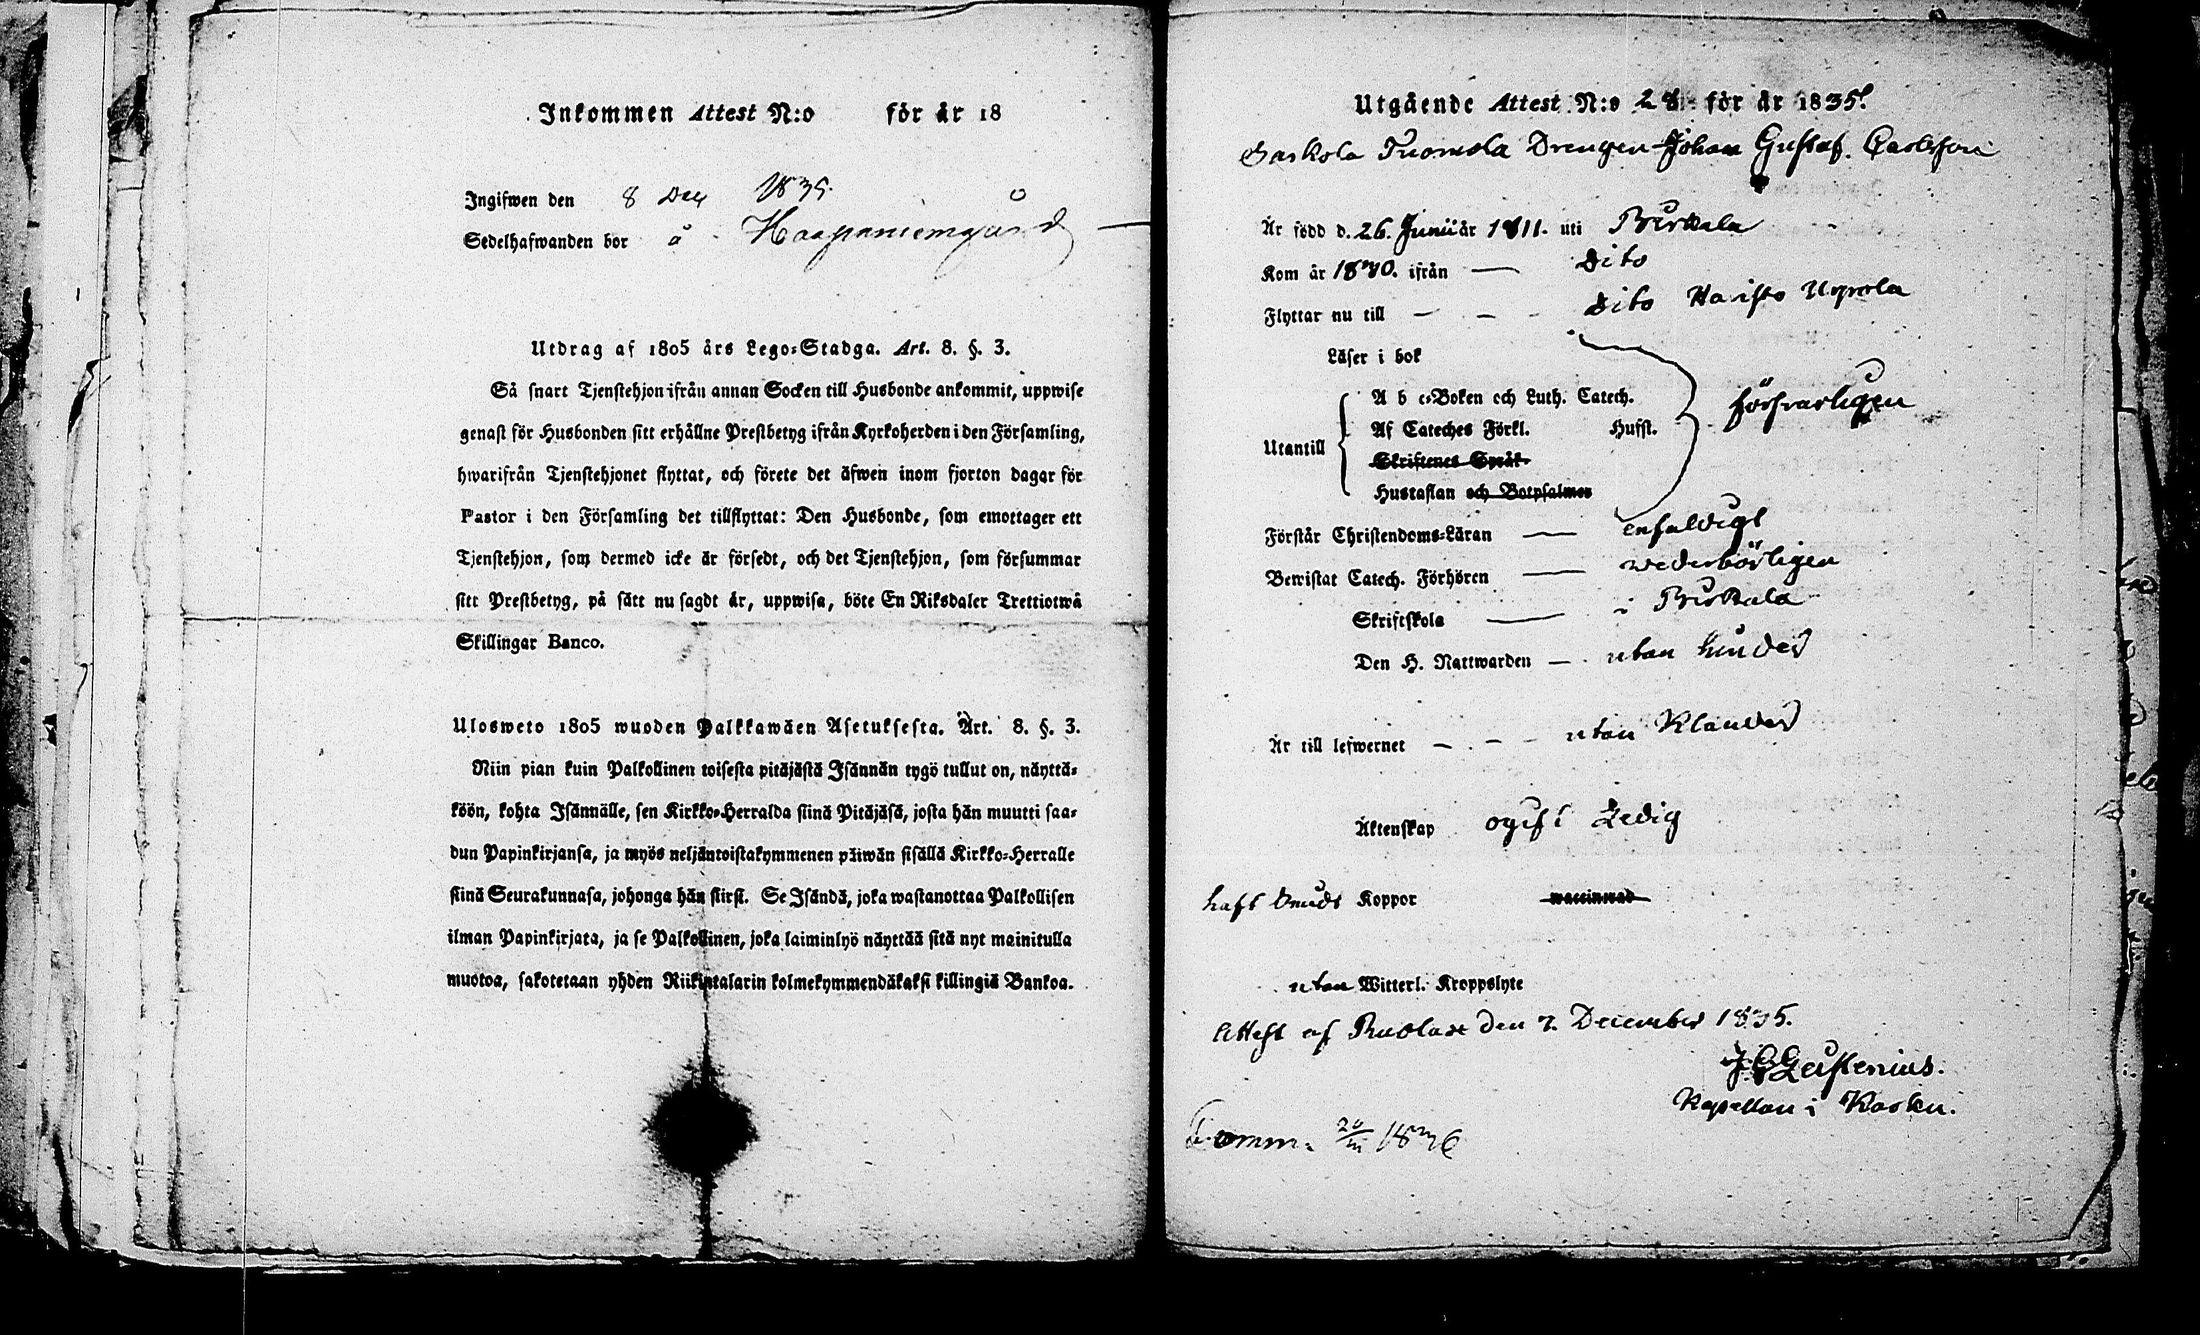 Inkommen Attest N:o för år 18
Ingifwen den 8 Dec 1835.
Sedelhafwanden bor å Haapaniemgård
Utdrag af 1805 års Lego-Stadga. Art. 8. §. 3.
Så snart Tjenstehjon ifrån annan Socken till Husbonde ankommit, uppwise
genast för Husbonden sitt erhållne Prestbetyg ifrån Kyrkoherden i den Församling,
hwarifrån Tjenstehjonet flyttat, och förete det äfwen inom fjorton dagar för
Pastor i den Församling det tillflyttat: Den Husbonde, som emottager ett
Tjenstehjon, som dermed icke är försedt, och det Tjenstehjon, som försummar
sitt Prestbetyg, på sätt nu sagdt är, uppwisa, böte En Riksdaler Trettiotwå
Skillingar Banco.
Ulosweto 1805 wuoden Palkkawäen Asetuksesta. Art. 8. §. 3.
Niin pian kuin Palkollinen toisesta pitäjästä Isännän tygö tullut on, näyttä-
köön, kohta Isännälle, sen Kirkko-Herralda siinä Pitäjäsä, josta hän muutti saa-
dun Papinkirjansa, ja myös neljäntoistakymmenen päiwän sisällä Kirkko-Herralle
siinä Seurakunnasa, johonga hän siirst. Se Isändä, joka wastanottaa Palkollisen
ilman Papinkirjata, ja se Palkollinen, joka laiminlyö näyttää sitä nyt mainitulla
muotoa, sakotetaan yhden Riikintalarin kolmekymmendäkaksi killingiä Bankoa.
Utgående Attest N:o 28 för år 1835.
Saskola Tuomola Drengen Johan Gustaf Carlsson
Är född d. 26. Junii år 1811. uti Birkala
Kom år 1830. ifrån Dito
Flyttar nu till Dito
Läser i bok
A b c-Boken och Luth. Catech.
Af Cateches Förkl. Hufst.
försvarligen
Utantill
Skriftenes Språk
Hustaflan och Botpsalmer
Förstår Christendoms-Läran enfaldigt
Bewistat Catech. Förhören wederbörligen
Skriftskola i Birkala
Den H. Nattwarden utan hinder
Är till lefwernet utan klander
Äktenskap ogift Ledig
haft Koppor waccinerad
utan Witterl. Kroppslyte
Attest af den 7. December 1835.
Kapellan i
1836